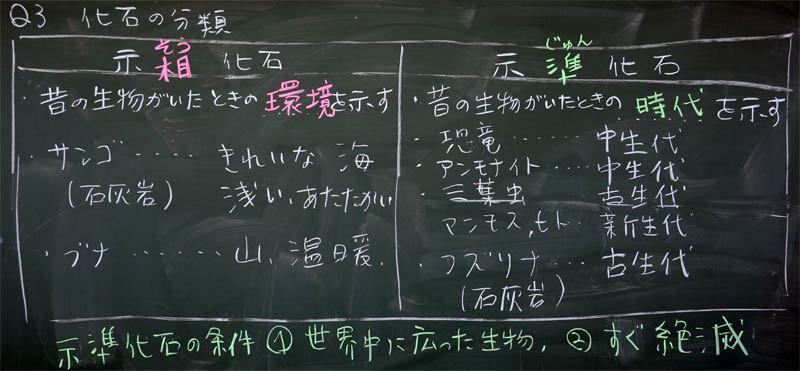 Q3 化石の分類
示相化石
そう
・昔の生物がいたときの環境を示す
・サンゴ‥‥‥きれいな 海
(石灰岩) 浅い、あたたかい
・ブナ‥‥‥山、温暖.
示準化石
じゅん
・昔の生物がいたときの 時代 を示す
・恐竜‥‥‥中生代
・アンモナイト‥‥中生代
・三葉虫 古生代
マンモス,ヒト‥新生代
・フズリナ‥‥古生代
(石灰岩)
示準化石の条件 ① 世界中に広った生物. ② すぐ絶滅